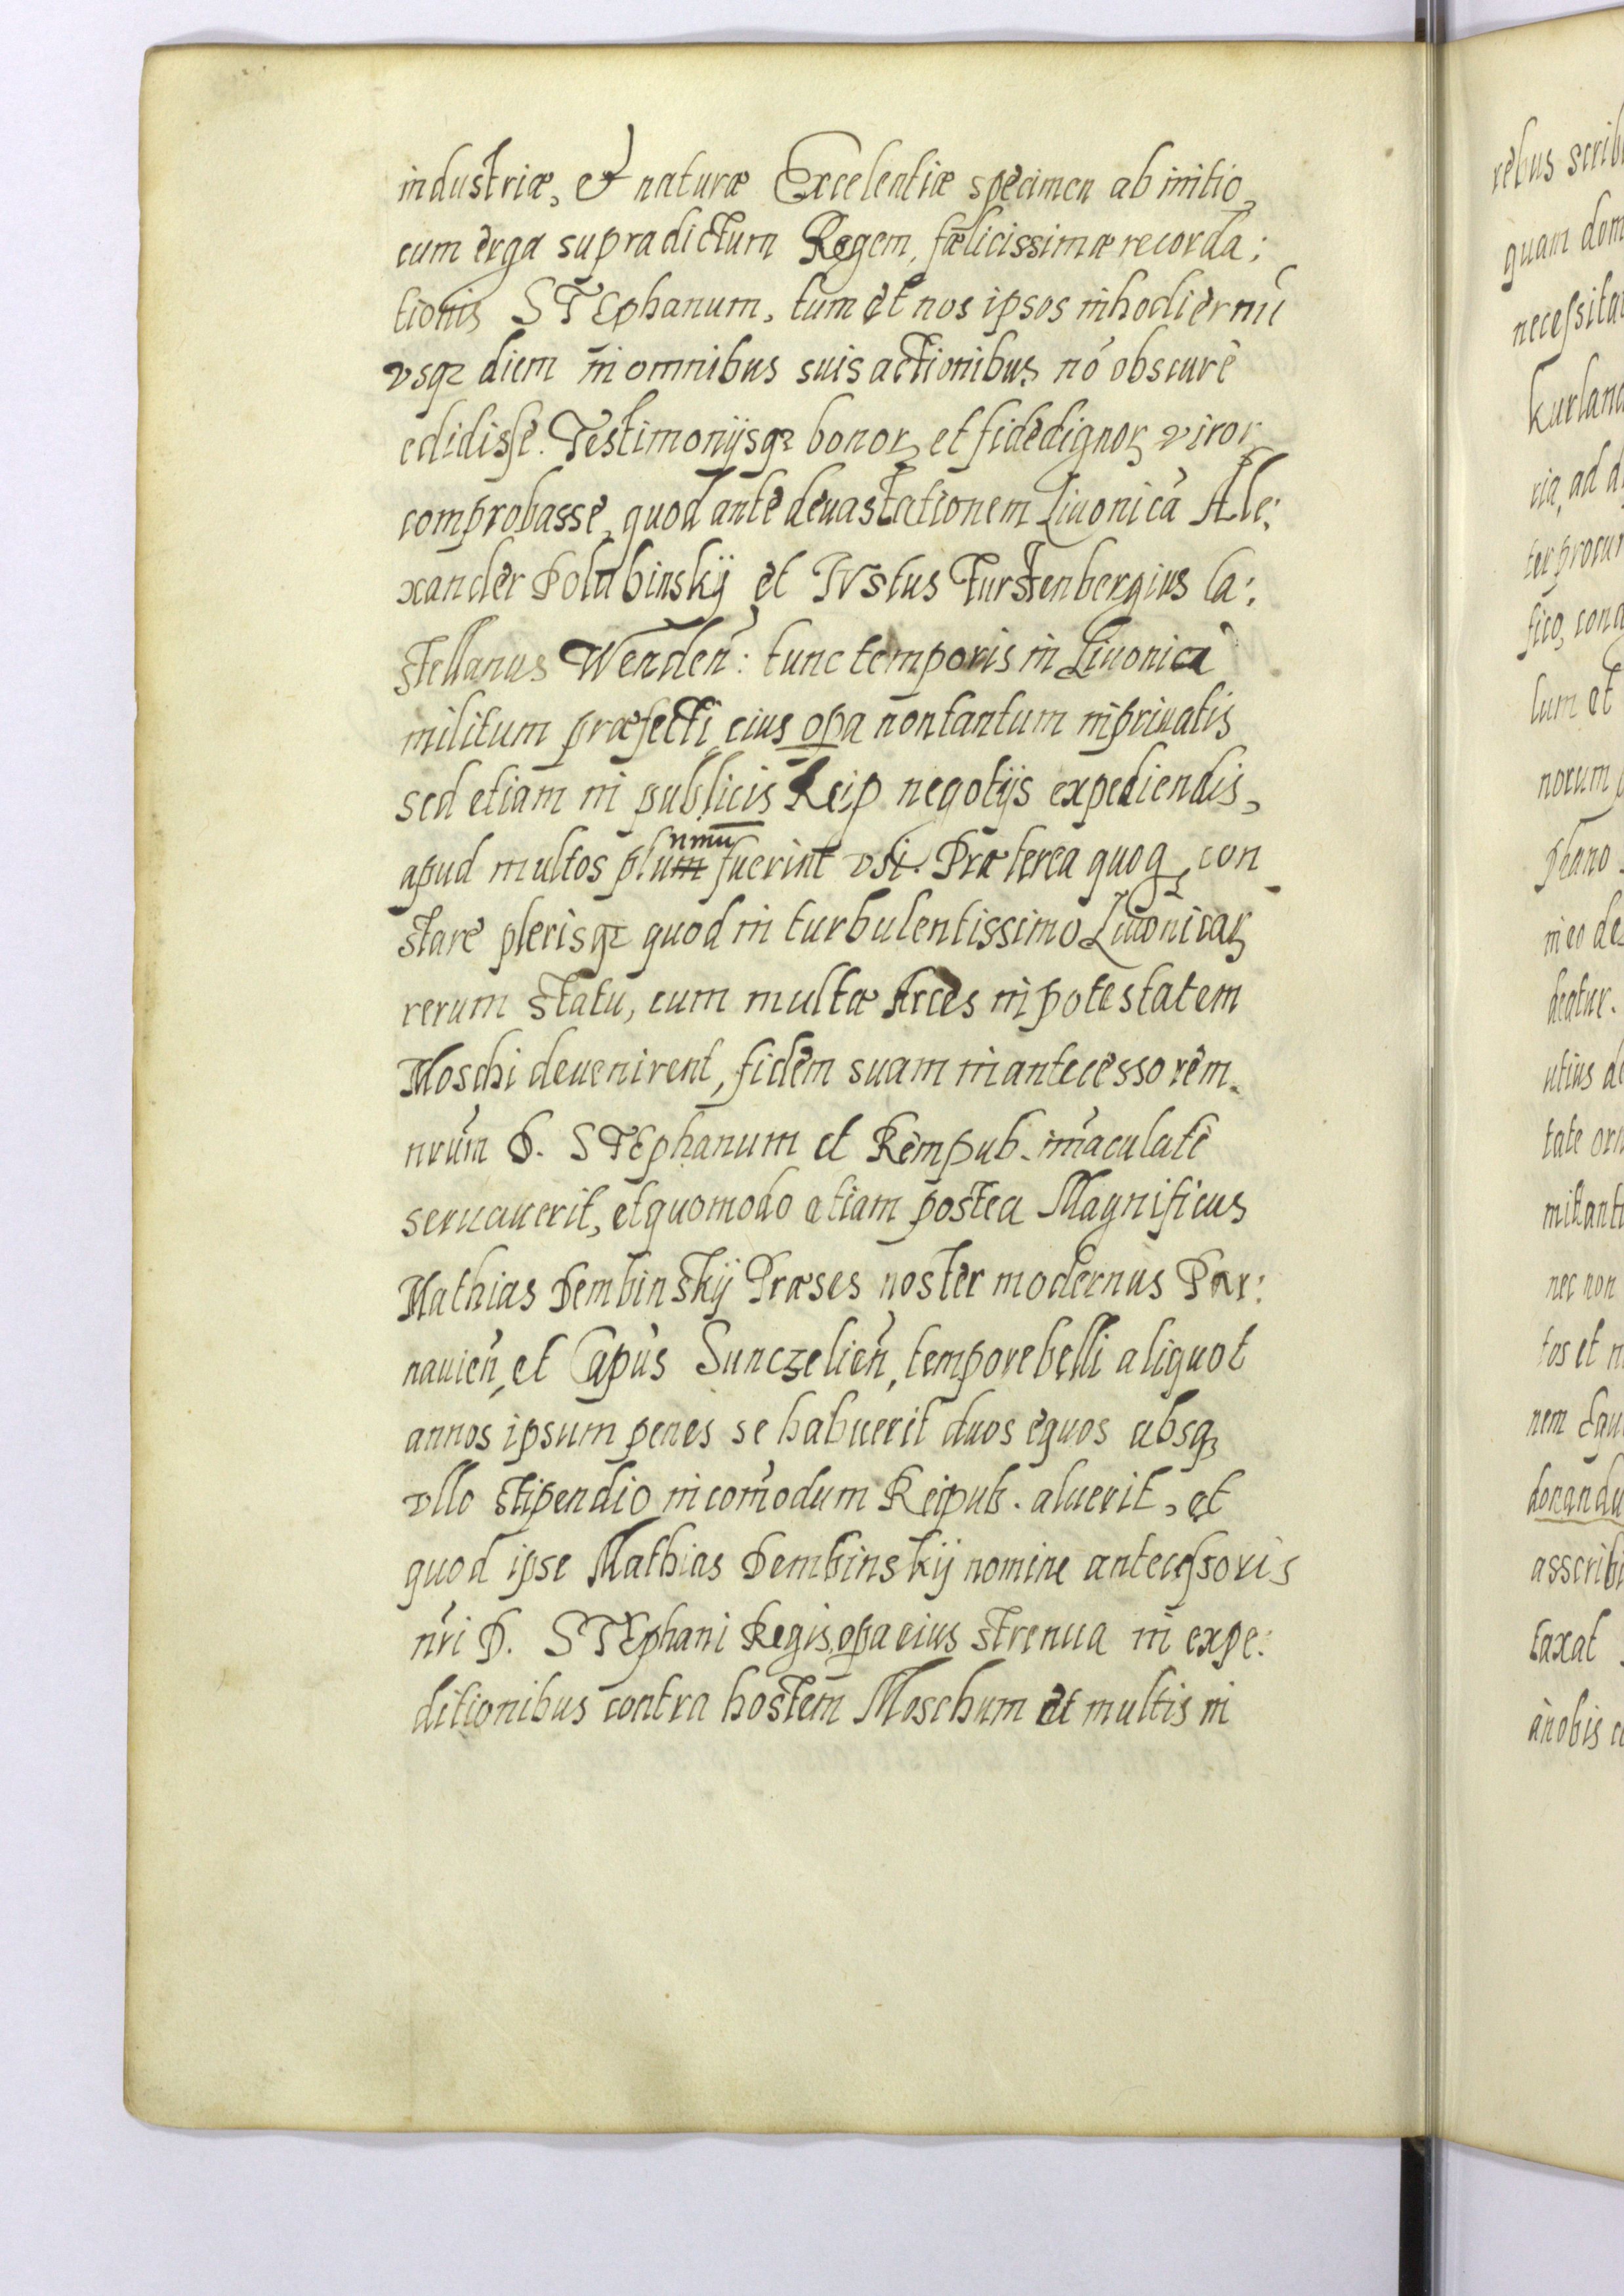 industriæ, et naturæ Excelentiæ specimen ab initio,
cum erga supradictum Regem, fælicissimæ recorda:
tionis STEphanum, tum et nos ipsos in hodiernũ
vsqz diem in omnibus suis actionibus nõ obscurè
edidisse. Testimonijsqz bonoꝝ et fidedignoꝝ viroꝝ
comprobasse, quod ante deuastationem Liuonicã Ale:
xander Polubinskÿ et IVstus Furstenbergius Ca:
stellanus Wenden̄: tunc temporis in Liuonica
militum præfecti, eius oꝑa non tantum in priuatis
sed etiam in publicis Reip negotijs expediendis,
apud multos plum nimũ fuerint vsi. Præterea quoqz con
stare plerisqz quod in turbulentissimo Liuonicaꝝ
rerum statu, cum multæ Arces in potestatem
Moschi deuenirent, fidem suam in antecessorem
nrũm D. STEphanum et Rempub. im̃aculatè
seruauerit, et quomodo etiam postea Magnificus
Mathias Dembinskÿ Præses noster modernus Par:
nauien̄, et Capũs Sunczelien̄, tempore belli aliquot
annos ipsum penes se habuerit duos equos absqz
vllo stipendio in com̃odum Reipub. aluerit, et
quod ipse Mathias Dembinskÿ nomine antecessoris
nr̃i D. STEphani Regis, oꝑa eius strenua in expe:
ditionibus contra hostem Moschum et multis in
rebus scrib
quam dom
necessita
Kurland
ria, ad d
ter procur
fico, cona
lum et
norum
phano
in eo de
deatur.
utius de
tate orn
mitant
nec non
tos et n
nem Equ
donandu
asscribi
taxat
à nobis c